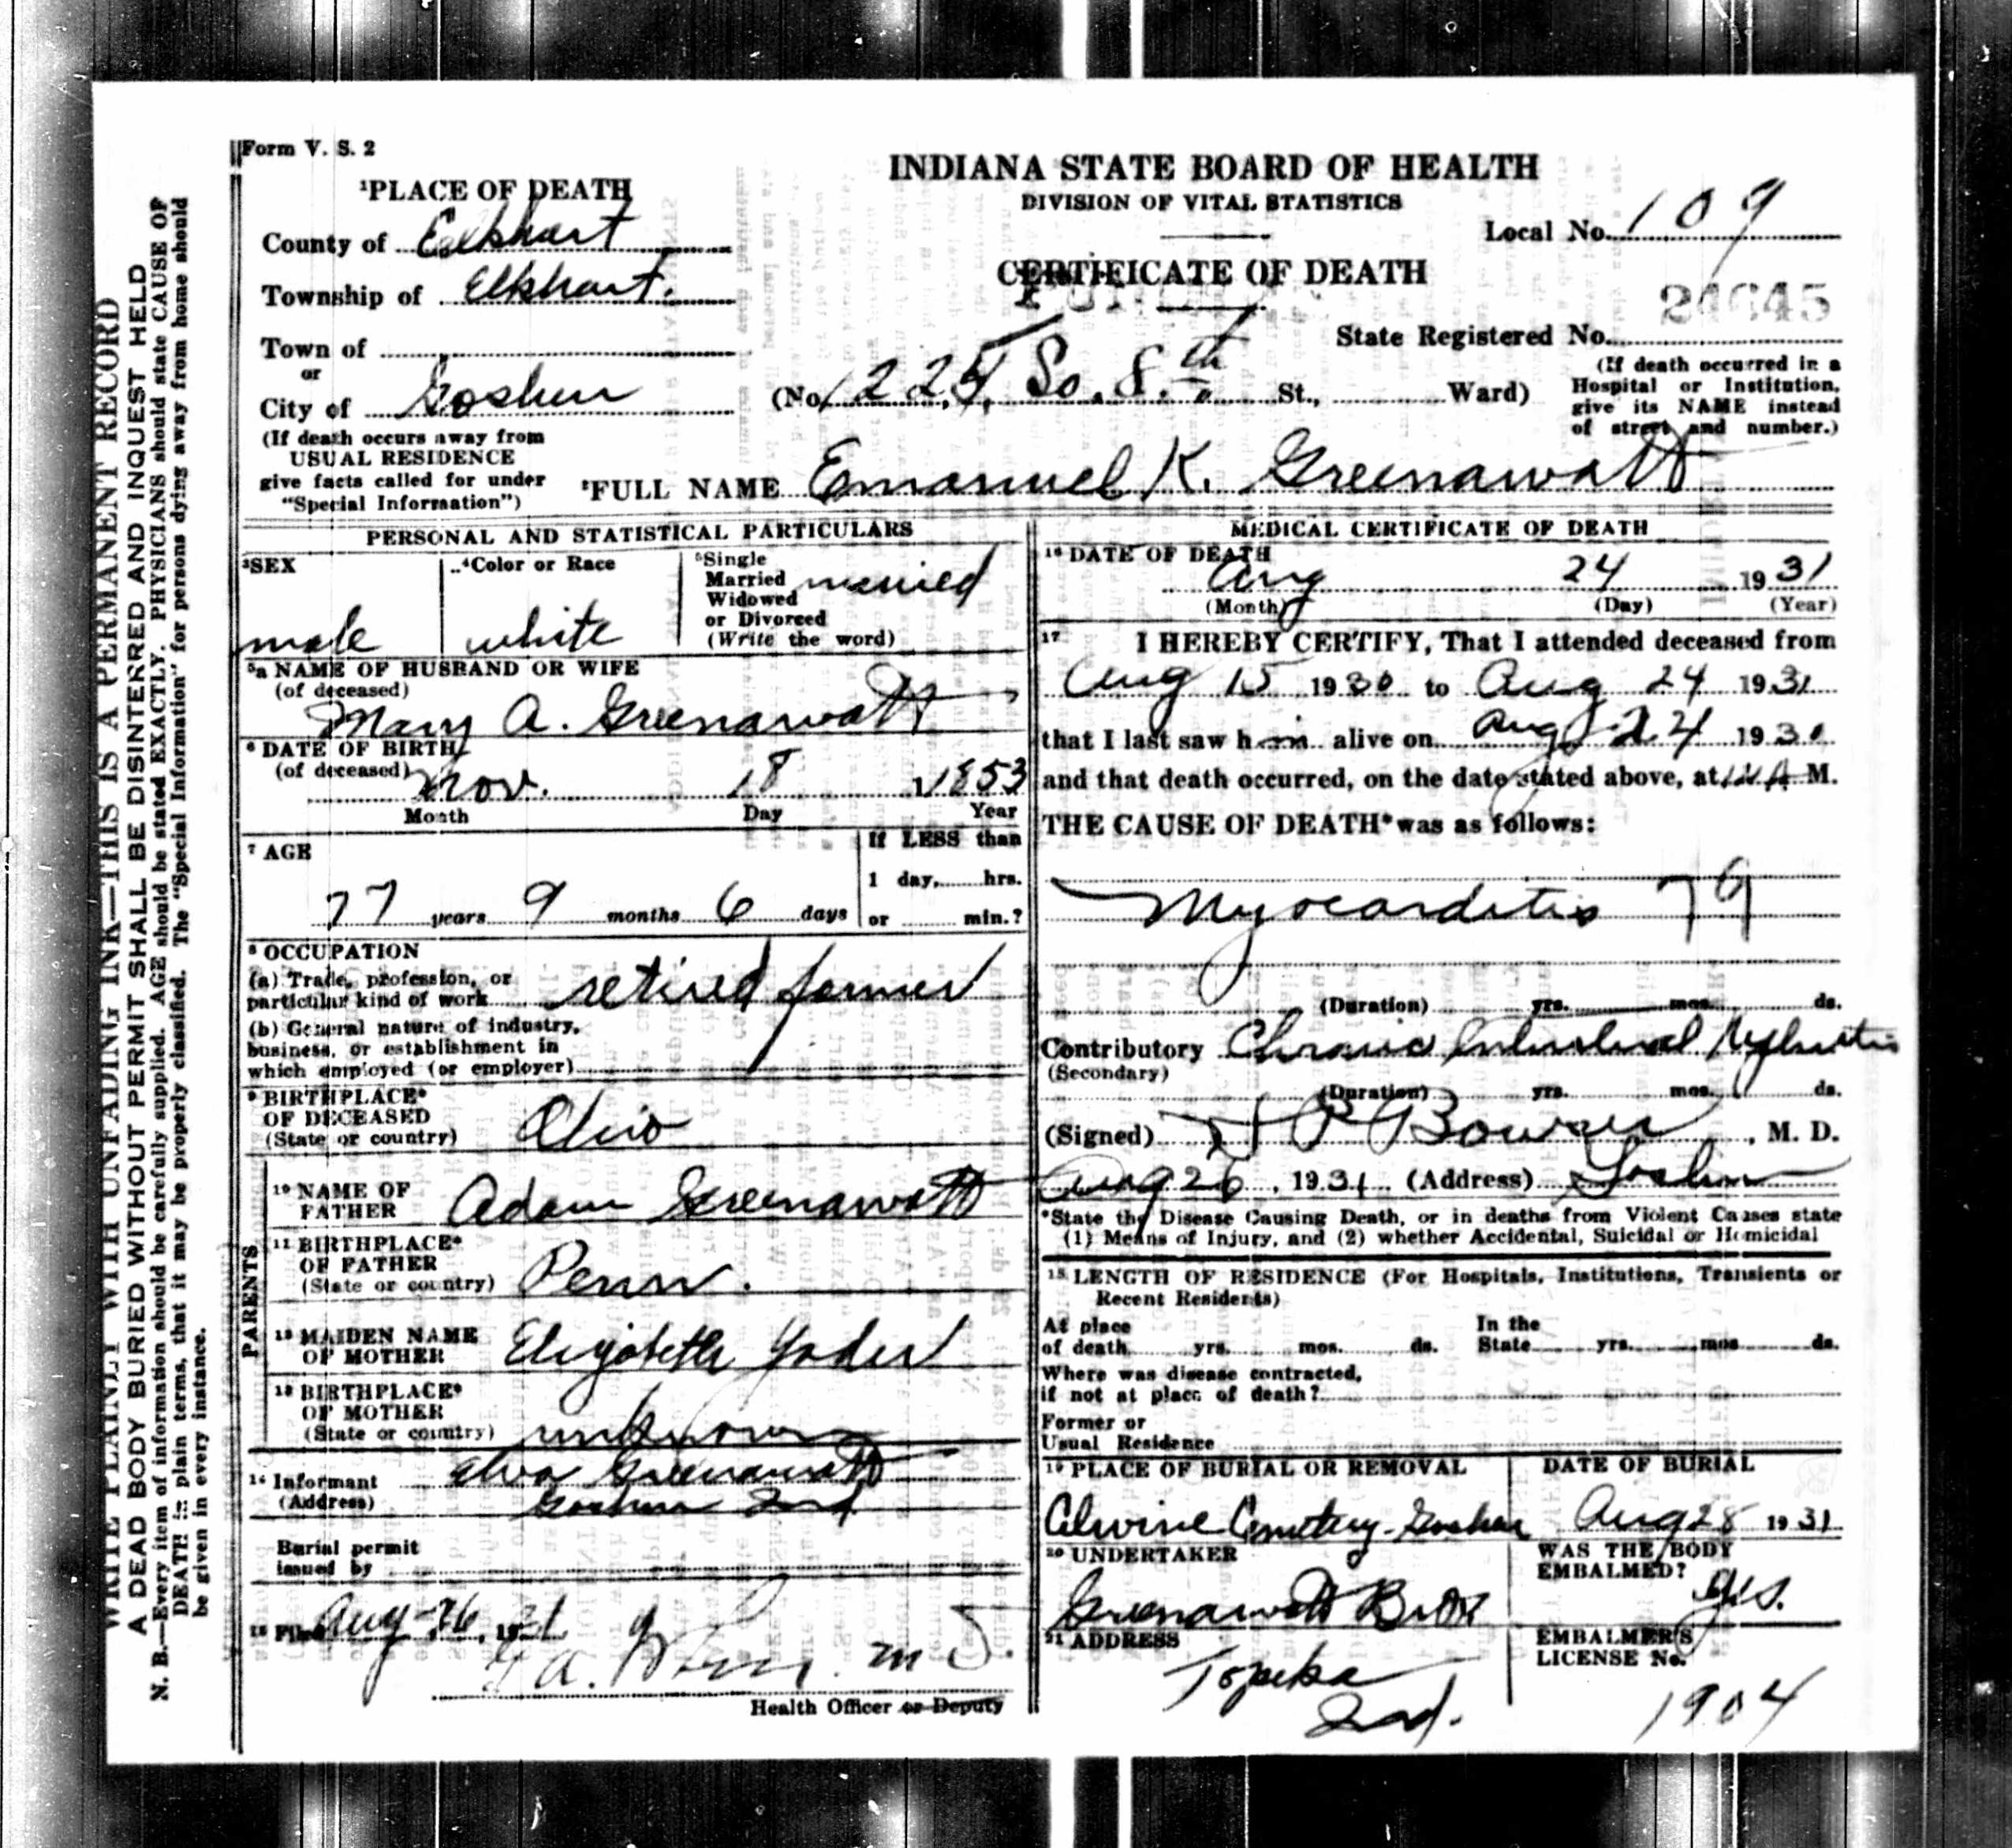 Form V. S. 2
INDIANA STATE BOARD OF HEALTH
DIVISION OF VITAL STATISTICS
CERTIFICATE OF DEATH
Local No. 109
State Registered No.
¹PLACE OF DEATH
County of Elkhart
Township of Elkhart.
Town of
or
City of Goshen
(No. So. 8.th St., Ward)
(If death occurred in a
Hospital or Institution,
give its NAME instead
of street and number.)
(If death occurs away from
USUAL RESIDENCE
give facts called for under
"Special Information")
²FULL NAME Emanuel K. Greenawalt
PERSONAL AND STATISTICAL PARTICULARS
³SEX
male
⁴Color or Race
white
⁵Single
Married
Widowed
or Divorced
(Write the word)
married
⁵a NAME OF HUSBAND OR WIFE
(of deceased)
Mary A. Greenawalt
⁶ DATE OF BIRTH
(of deceased)
Nov. 18 1853
Month Day Year
⁷ AGE
77 years 9 months 6 days
If LESS than
1 day, hrs.
or min.?
⁸ OCCUPATION
(a) Trade, profession, or
particular kind of work retired farmer
(b) General nature of industry,
business, or establishment in
which employed (or employer)
⁹ BIRTHPLACE*
OF DECEASED
(State or country) Ohio
PARENTS
¹⁰ NAME OF
FATHER Adam Greenawalt
¹¹ BIRTHPLACE*
OF FATHER
(State or country) Penn.
¹² MAIDEN NAME
OF MOTHER Elizabeth Yoder
¹³ BIRTHPLACE*
OF MOTHER
(State or country) unknown
¹⁴ Informant Elva Greenawalt
(Address) Goshen Ind
Burial permit
issued by
¹⁵ Filed Aug 26, 1931
M D.
Health Officer or Deputy
MEDICAL CERTIFICATE OF DEATH
¹⁶ DATE OF DEATH
Aug 24 1931
(Month) (Day) (Year)
¹⁷ I HEREBY CERTIFY, That I attended deceased from
Aug 15 1930 to Aug 24 1931
that I last saw him alive on Aug 24 1930
and that death occurred, on the date stated above, at M.
THE CAUSE OF DEATH* was as follows:
Myocarditis 79
(Duration) yrs. mos. ds.
Contributory Chronic Interstitial Nephritis
(Secondary)
(Duration) yrs. mos. ds.
(Signed) Bowser, M. D.
Aug 26, 1931 (Address) Goshen
*State the Disease Causing Death, or in deaths from Violent Causes state
(1) Means of Injury, and (2) whether Accidental, Suicidal or Homicidal
¹⁸ LENGTH OF RESIDENCE (For Hospitals, Institutions, Transients or
Recent Residents)
At place
of death yrs. mos. ds.
In the
State yrs. mos ds.
Where was disease contracted,
if not at place of death?
Former or
Usual Residence
¹⁹ PLACE OF BURIAL OR REMOVAL
Cemetery - Goshen
DATE OF BURIAL
Aug 28 1931
²⁰ UNDERTAKER
Greenawalt Bros
WAS THE BODY
EMBALMED?
yes.
²¹ ADDRESS
Topeka
Ind.
EMBALMER'S
LICENSE No.
1904
WRITE PLAINLY WITH UNFADING INK—THIS IS A PERMANENT RECORD
A DEAD BODY BURIED WITHOUT PERMIT SHALL BE DISINTERRED AND INQUEST HELD
N. B.—Every item of information should be carefully supplied. AGE should be stated EXACTLY. PHYSICIANS should state CAUSE OF
DEATH in plain terms, that it may be properly classified. The "Special Information" for persons dying away from home should
be given in every instance.